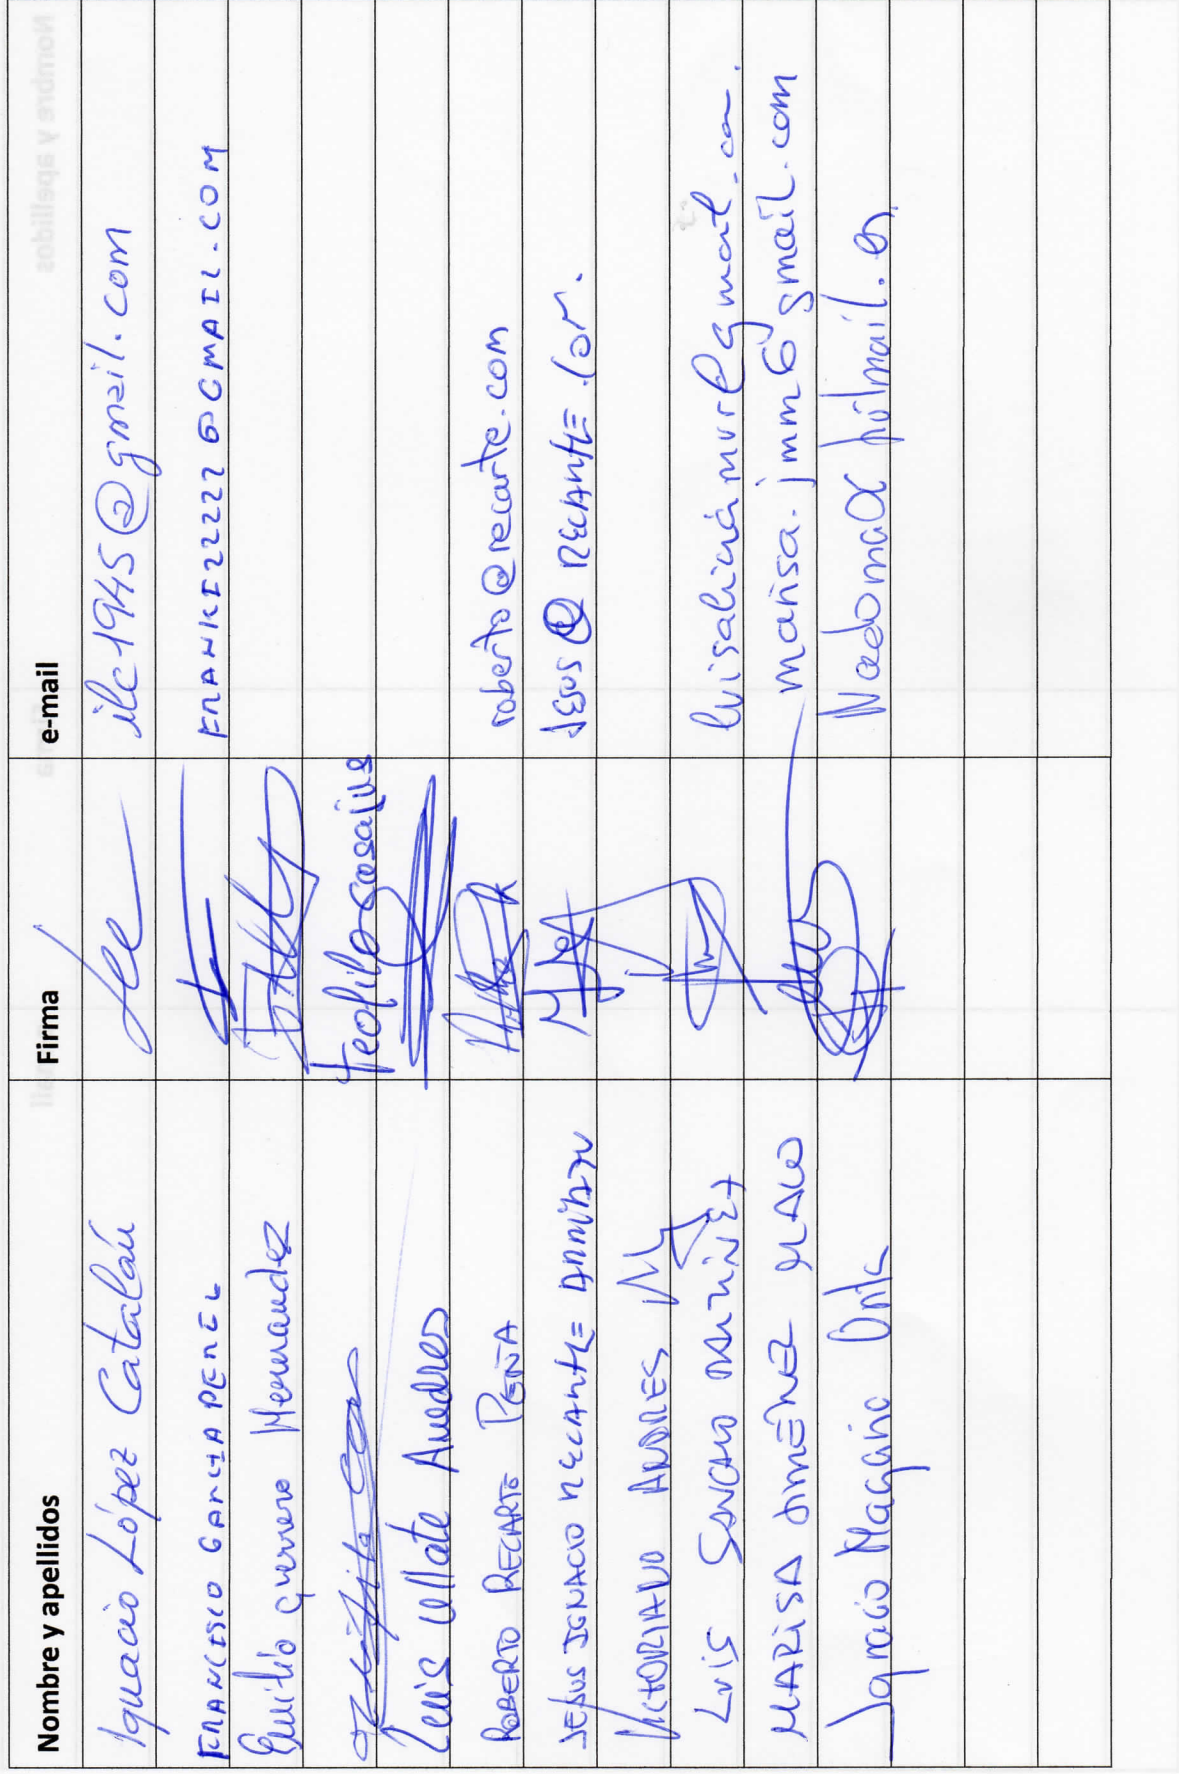 Nombre y apellidos Firma e-mail
Ignacio López Catalán ilc1945@gmail.com
FRANCISCO GARCIA PEREZ FRANKI22222@GMAIL.COM
Emilio guerrero Hernandez
Teofilo
Luis Ullate Andres
ROBERTO RECARTE PEÑA roberto@recarte.com
JESUS IGNACIO RECARTE JESUS@RECARTE.COM.
VICTORIANO ANDRES
LUIS SANCHO MARTINEZ
MARISA JIMÉNEZ MALO marisa.jmm@gmail.com
Ignacio Magaña